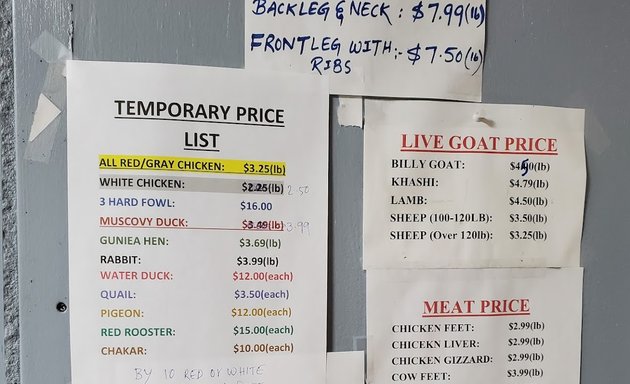 BACKLEG & NECK : $7.99(lb)
FRONTLEG WITH :- $7.50(lb)
RIBS
TEMPORARY PRICE
LIST
ALL RED/GRAY CHICKEN: $3.25(lb)
WHITE CHICKEN: $2.25(lb) 2.50
3 HARD FOWL: $16.00
MUSCOVY DUCK: $3.49(lb) 3.99
GUNIEA HEN: $3.69(lb)
RABBIT: $3.99(lb)
WATER DUCK: $12.00(each)
QUAIL: $3.50(each)
PIGEON: $12.00(each)
RED ROOSTER: $15.00(each)
CHAKAR: $10.00(each)
BY 10 RED OR WHITE
LIVE GOAT PRICE
BILLY GOAT: (lb)
KHASHI: $4.79(lb)
LAMB: $4.50(lb)
SHEEP (100-120LB): $3.50(lb)
SHEEP (Over 120lb): $3.25(lb)
MEAT PRICE
CHICKEN FEET: $2.99(lb)
CHICEKN LIVER: $2.99(lb)
CHICKEN GIZZARD: $2.99(lb)
COW FEET: $3.99(lb)